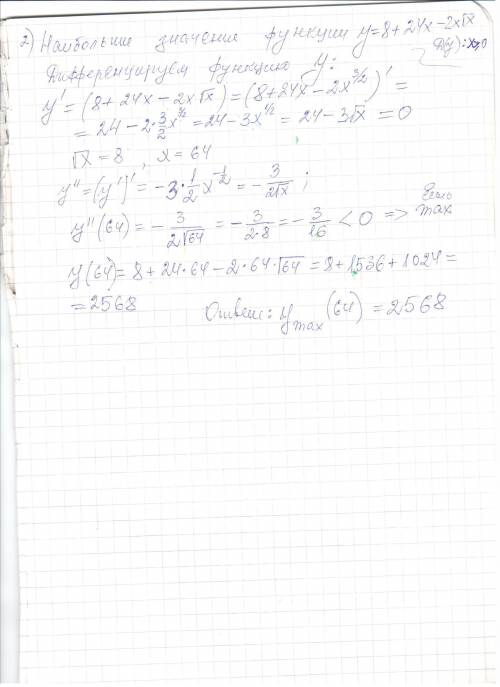 2) Наибольшие значение функции y=8+24x-2x√x
Д(y): x≥0
Дифференцируем функцию y:
y' = (8+24x-2x√x) = (8+24x-2x^{3/2})' =
= 24-2·\frac{3}{2}x^{1/2} = 24-3x^{1/2} = 24-3√x = 0
√x = 8 , x = 64
y'' = (y')' = -3·\frac{1}{2}x^{-\frac{1}{2}} = -\frac{3}{2√x} ;
y''(64) = -\frac{3}{2√64} = -\frac{3}{2·8} = -\frac{3}{16} < 0 => Есть max
y(64) = 8+24·64-2·64·√64 = 8+1536+1024 =
= 2568
Ответ: y_{max}(64) = 2568